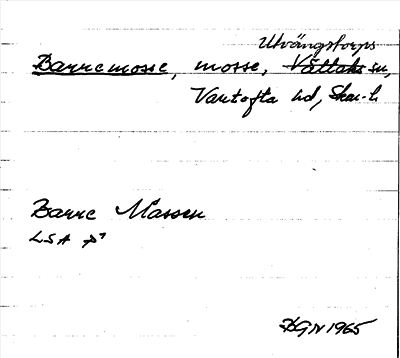 Utvängstorps
Barremosse, mosse, Vättaks sn,
Vartofta hd, Skar. l.
Barre Massen
LSA
DGN 1965